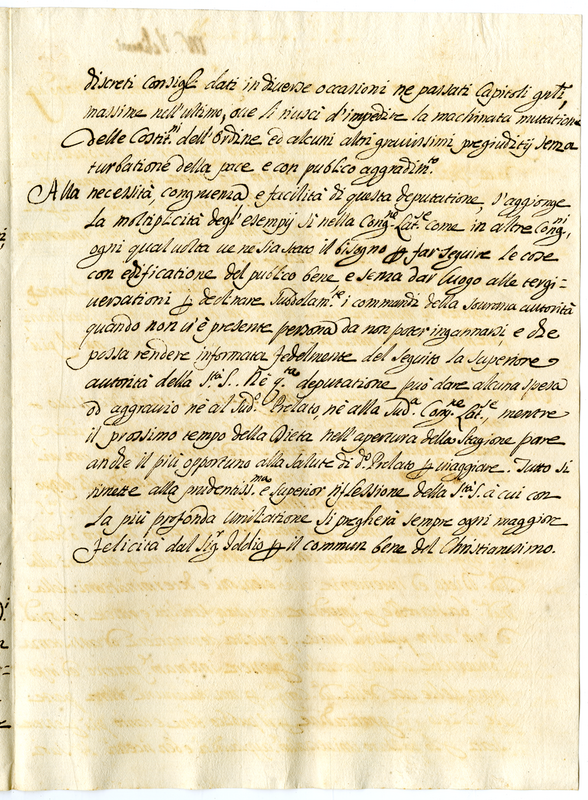 discreti Consigli dati in diverse occasioni ne passati Capitoli gnli,
massime nell'ultimo, ove si riuscì d'impedire la machinata mutatione
delle Costit.ni dell'Ordine ed alcuni altri gravissimi pregiuditij senza
turbatione della pace e con publico aggradim.to
Alla necessità congruenza e facilità di questa deputatione, s'aggionge
La moltiplicità degl'esempij sì nella Cong.ne Lat.se come in altre Cong.ni
ogni qual volta ve ne sia stato il bisogno p far seguire le cose
con edificatione del publico bene e senza dar luogo alle tergi-
versationi p declinare subdolam.te i commandi della sourana autorità
quando non vi è presente persona da non poter ingannarsi, e che
possa rendere informata fedelmente del seguito la superiore
autorità della S.tà S. Nè q.ta deputatione può dare alcuna spesa
od aggravio nè al sud.o Prelato, nè alla sud.a Cong.ne Lat.se, mentre
il prossimo tempo della Dieta nell'apertura della stagione pare
anche il più opportuno alla salute di d.o Prelato p viaggiare. Tutto si
rimette alla prudentiss.ma e superior riflessione della S.tà S. à cui con
La più profonda umiliatione si pregherà sempre ogni maggior
felicità dal Sig.r Iddio p il commun bene del Christianesimo.